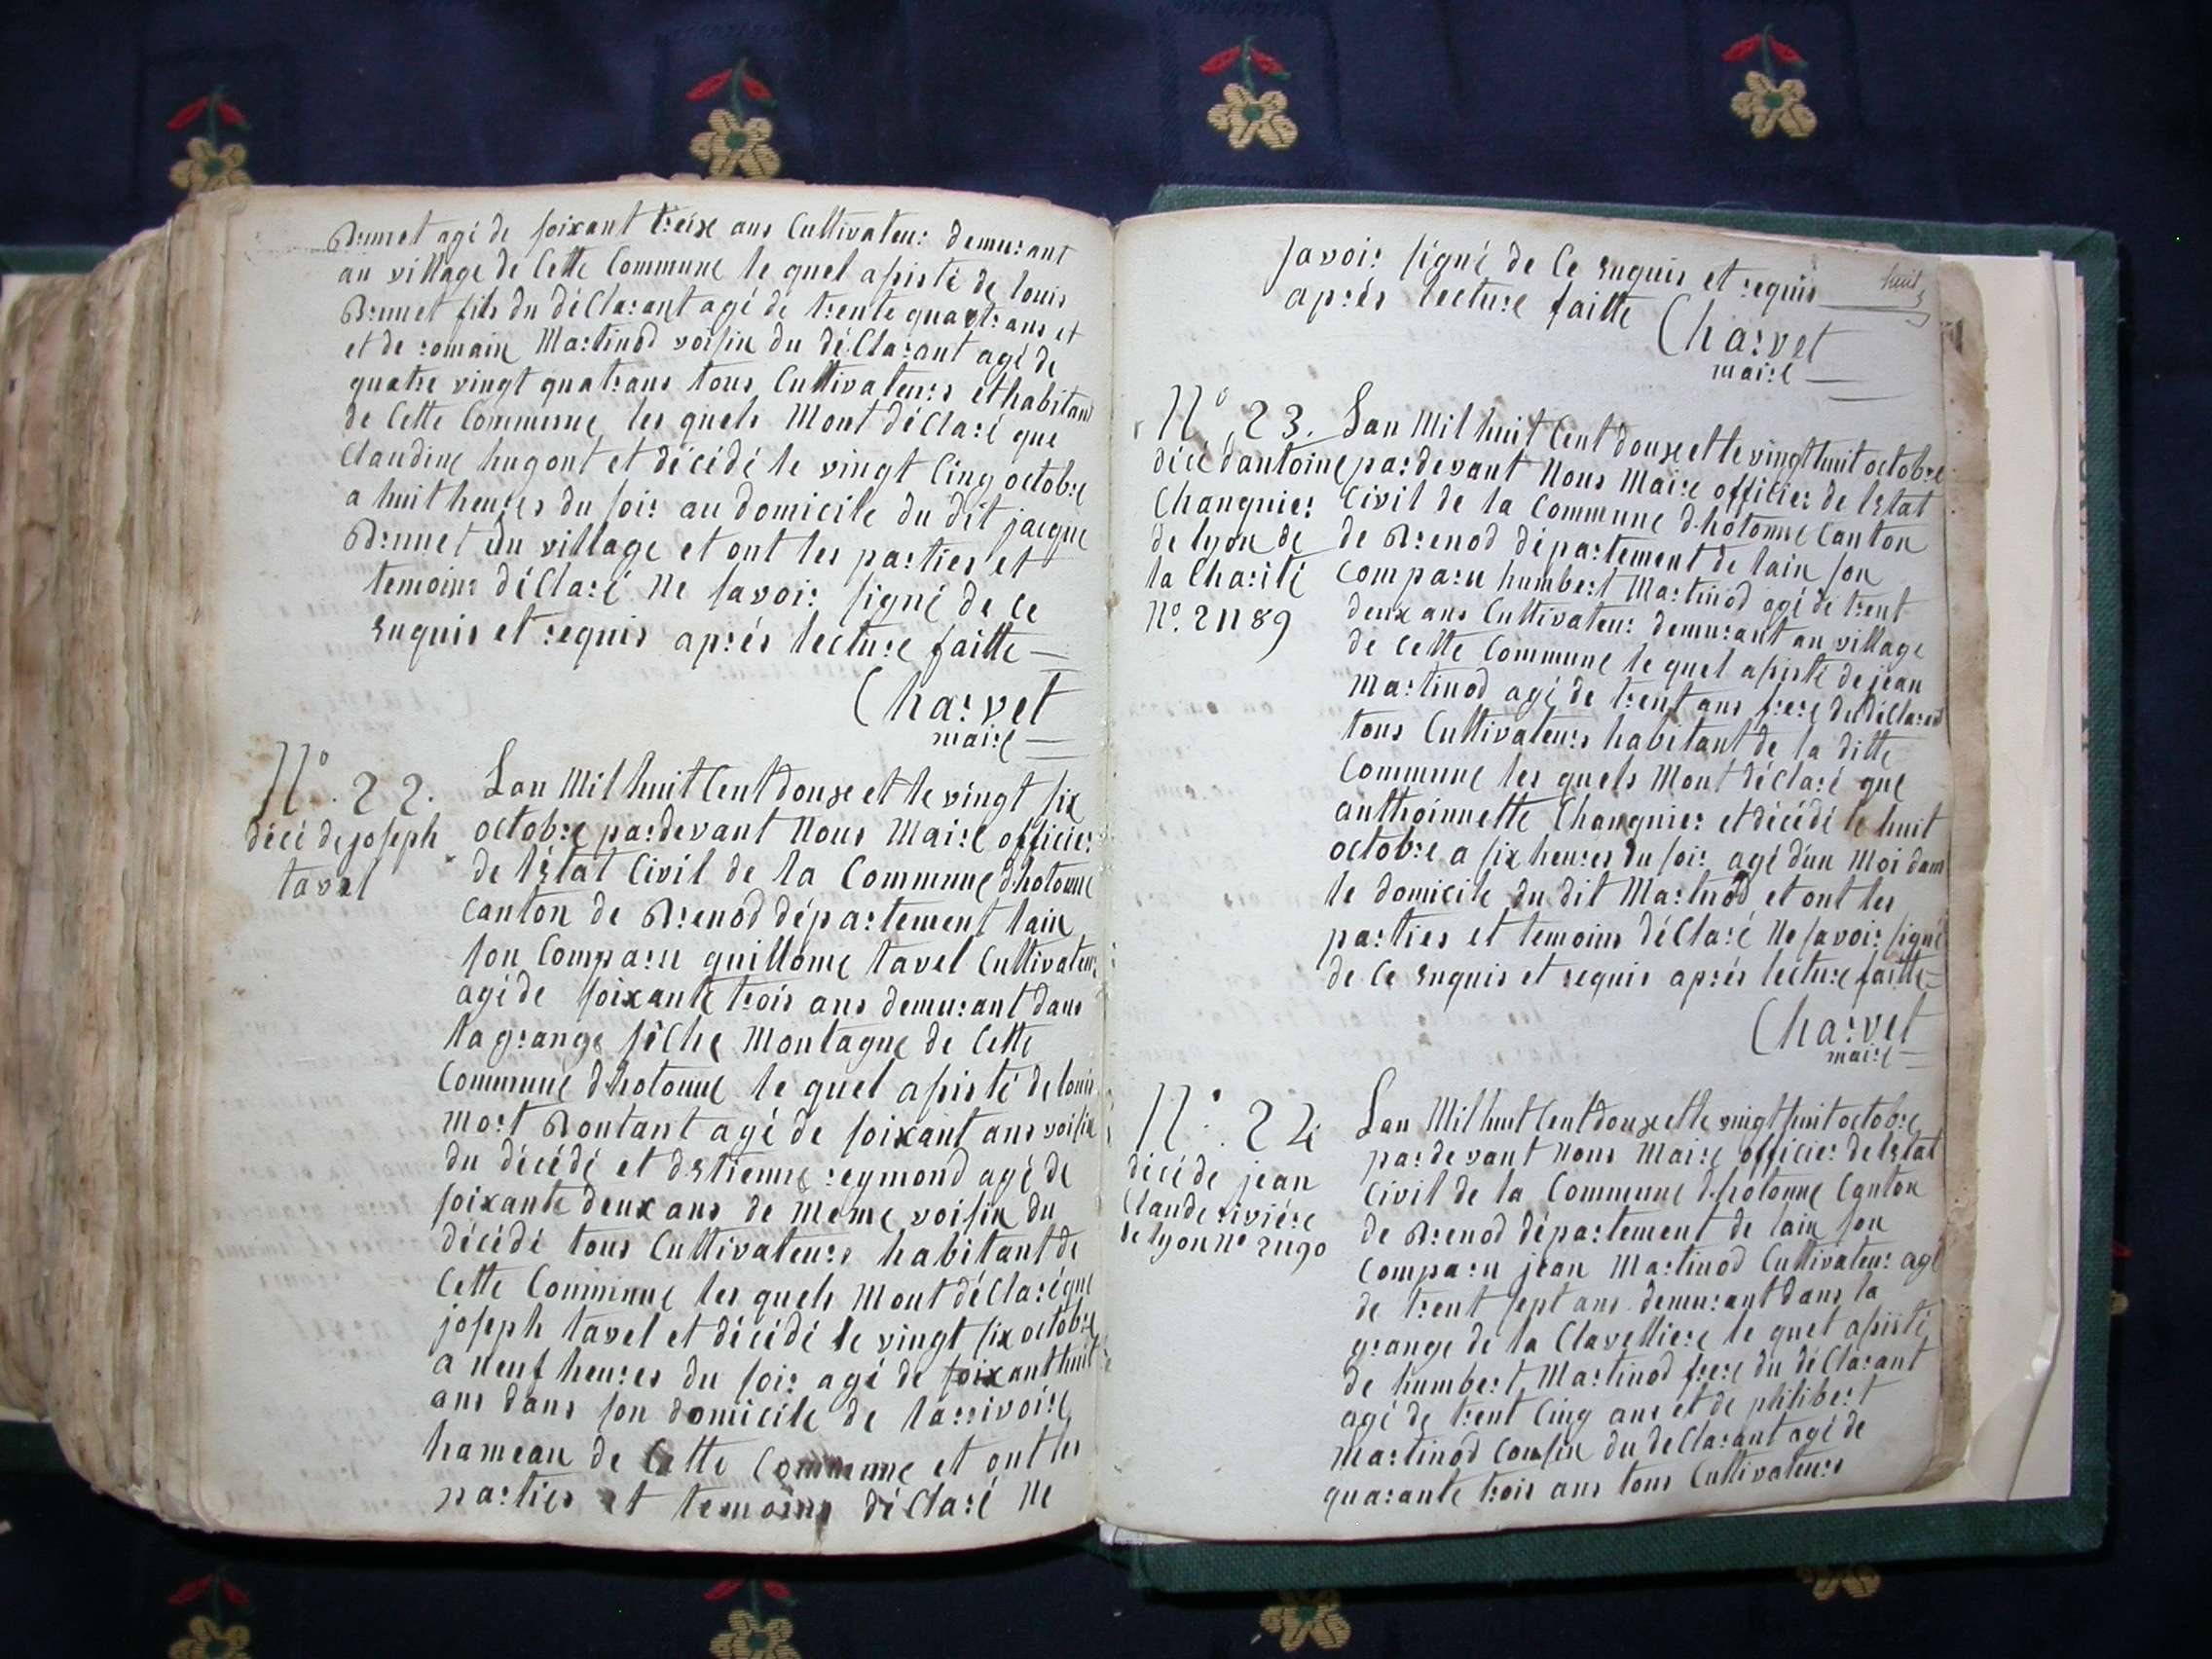 Brunet agé de soixant treize ans Cultivateur demurant
au village de Cette Commune le quel asisté de louis
Brunet fils du déClarant agé de trente quatr ans et
et de romain Martinod voisin du déClarant agé de
quatre vingt quatr ans tous Cultivateurs et habitant
de Cette Commune les quels Mont déClaré que
Claudine hugont et décédé le vingt Cinq octobre
a huit heures du soir au domicile du dit jacque
Brunet du village et ont les parties et
temoins déClaré Ne savoir signé de Ce
Enquis et requis aprés lecture faitte
Charvet
maire
N° 22.
décé de joseph
tavel
Lan Mil huit Cent douze et le vingt six
octobre pardevant Nous Maire officier
de lEtat Civil de la Commune dhotonne
Canton de Brenod département lain
son Comparu guillome tavel Cultivateur
agé de soixante trois ans demurant dans
la grange séche Montagne de Cette
Commune dhotonne le quel asisté de louis
mort Boutant agé de soixant ans voisin
du décédé et dEtienne reymond agé de
soixante deux ans de meme voisin du
décédé tous Cultivateurs habitant de
Cette Commune les quels Mont déClaré que
joseph tavel et décédé le vingt six octobre
a neuf heures du soir agé de soixant huit
ans dans son domicile de larrivoire
hameau de Cette Commune et ont les
parties et temoins déClaré Ne
savoir signé de Ce Enquis et requis
huit
aprés lecture faitte
Charvet
maire
N° 23.
décé dantoine
Changnier
de lyon de
la Charité
N°. 21189
Lan Mil huit Cent douze et le vingt huit octobre
pardevant Nous Maire officier de lEtat
Civil de la Commune dhotonne Canton
de Brenod département de lain son
Comparu humbert Martinod agé de trent
deux ans Cultivateur demurant au village
de Cette Commune le quel asisté de jean
Martinod agé de trent ans frere du déClarant
tous Cultivateurs habitant de la ditte
Commune les quels Mont déClaré que
anthoinnette Changnier et décédé le huit
octobre a six heures du soir agé dun Moi dans
le domicile du dit Martnod et ont les
parties et temoins déClaré Ne savoir signé
de Ce Enquis et requis aprés lecture faitte
Charvet
maire
N° 24
décé de jean
Claude riviére
de lyon N° 21190
Lan Mil huit Cent douze et le vingt huit octobre
pardevant Nous Maire officier de lEtat
Civil de la Commune dhotonne Canton
de Brenod département de lain son
Comparu jean Martinod Cultivateur agé
de trent sept ans demurant dans la
grange de la Clavelliere le quel asisté
de humbert Martinod frere du déClarant
agé de trent Cinq ans et de philibert
Martinod Cousin du deClarant agé de
quarante trois ans tous Cultivateurs